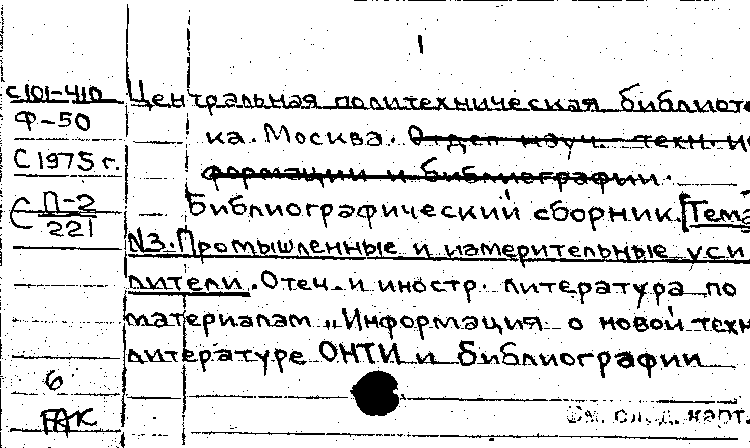 1
с101-410 Центральная политехническая библиоте
Ф-50 ка. Москва. Отдел науч. техн. ин
С 1975 г. формации и библиографии.
С П-2/221 Библиографический сборник. [Тема
N3. Промышленные и измерительные уси
лители. Отеч. и иностр. литература по
материалам „Информация о новой техн
литературе ОНТИ и библиографии
6
ГАК См. след. карт.